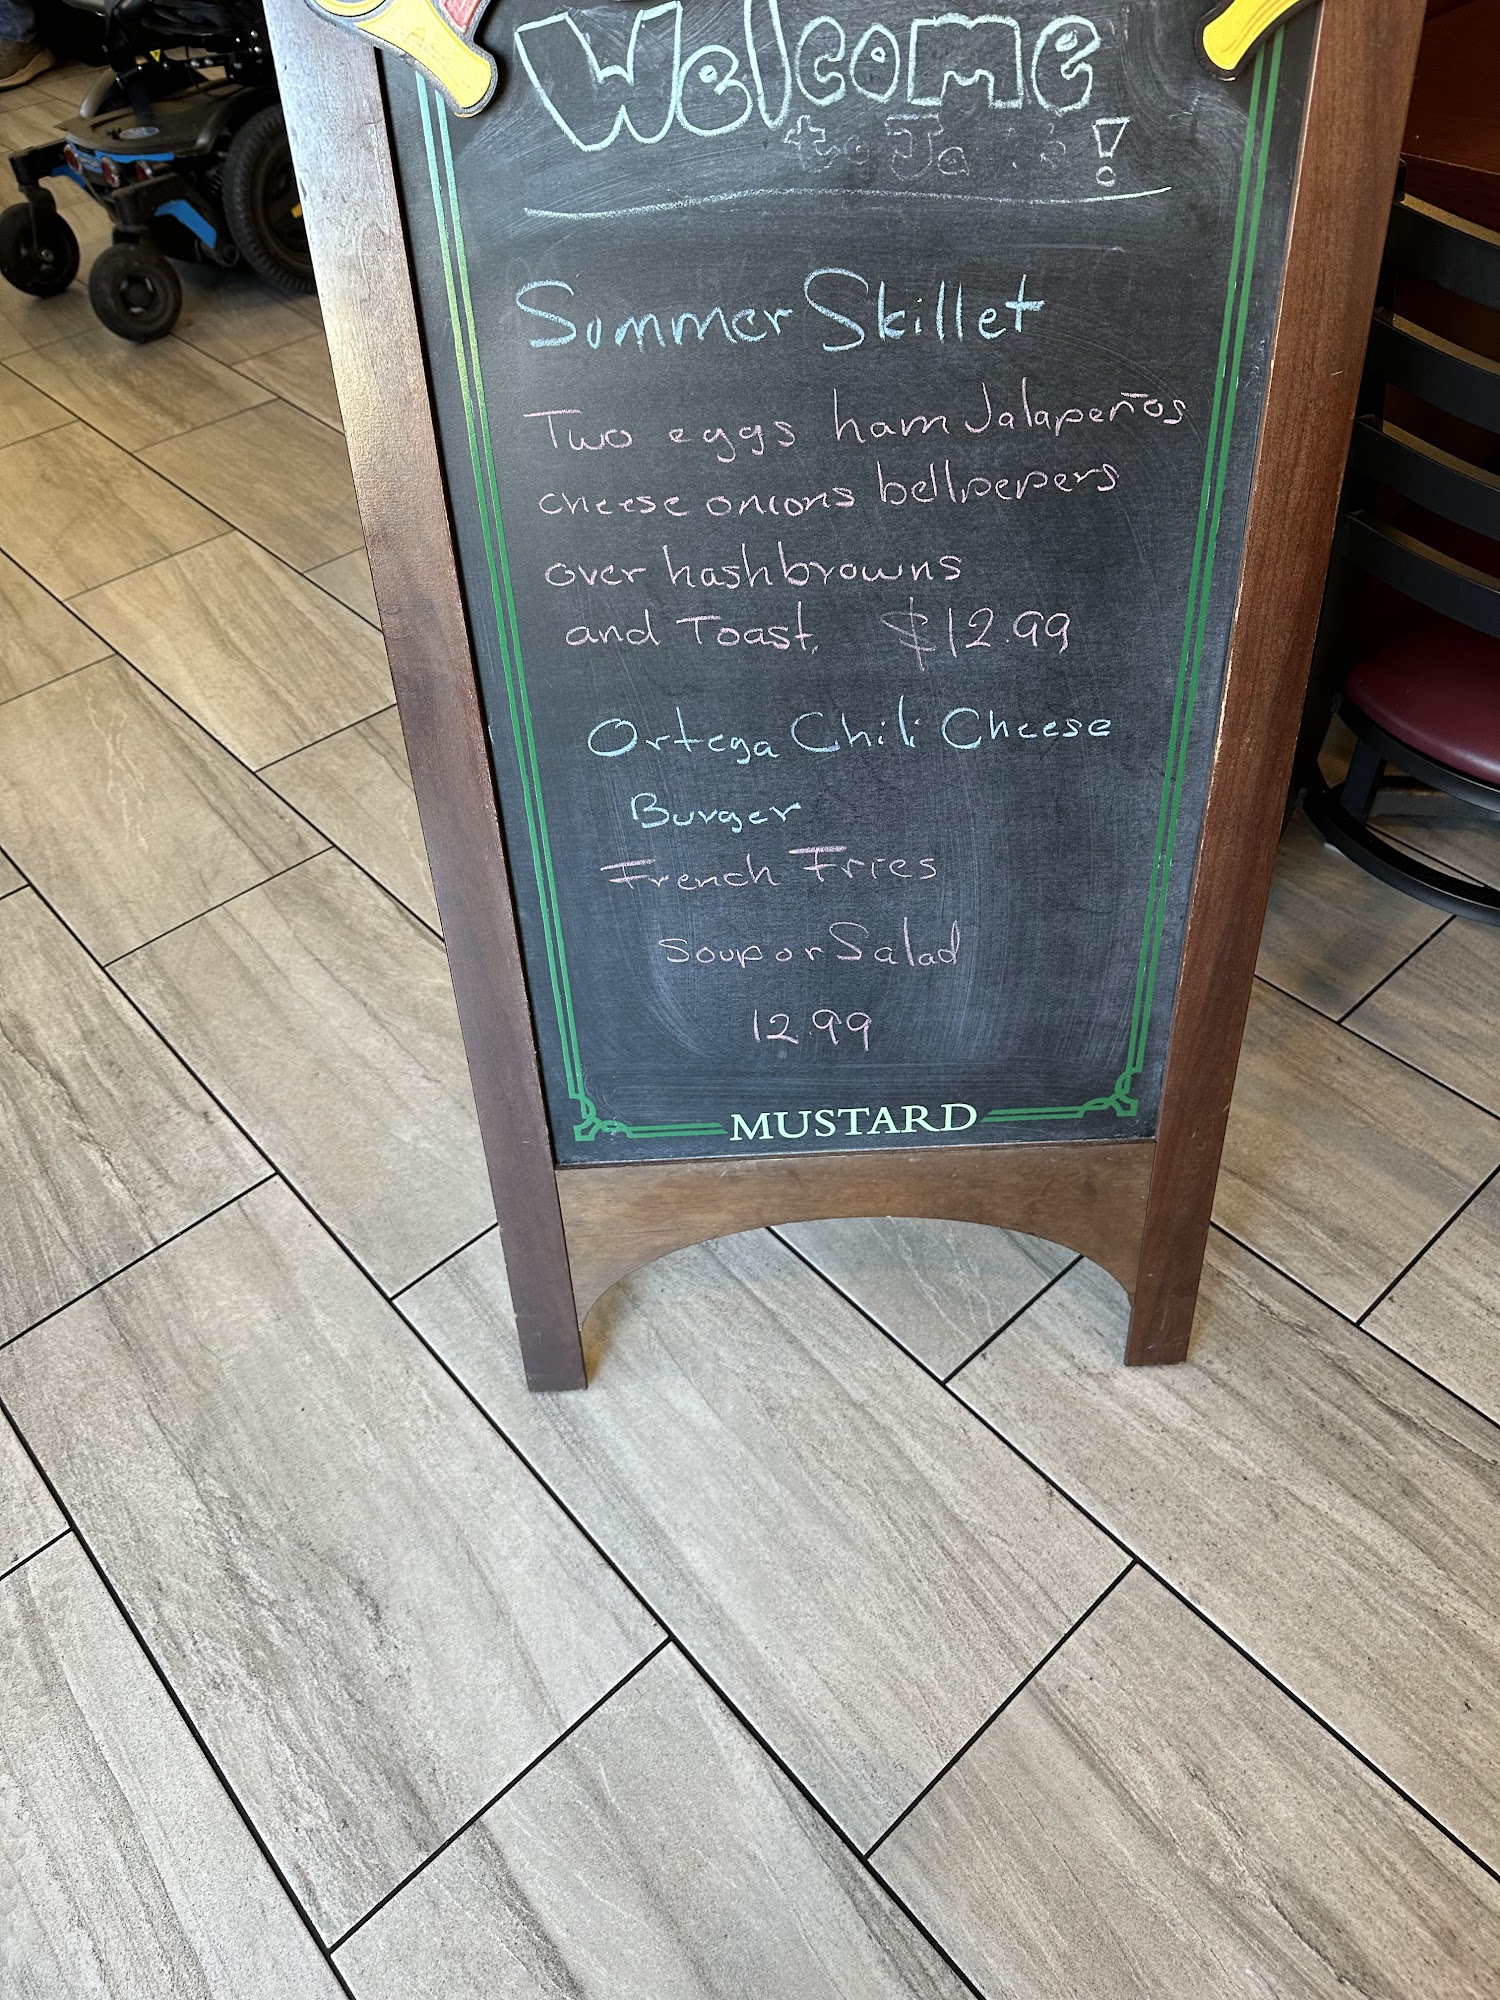 Welcome
to Ja !
Summer Skillet
Two eggs ham Jalapeños
cheese onions bellpepers
over hashbrowns
and Toast. $12.99
Ortega Chili Cheese
Burger
French Fries
Soup or Salad
12.99
MUSTARD